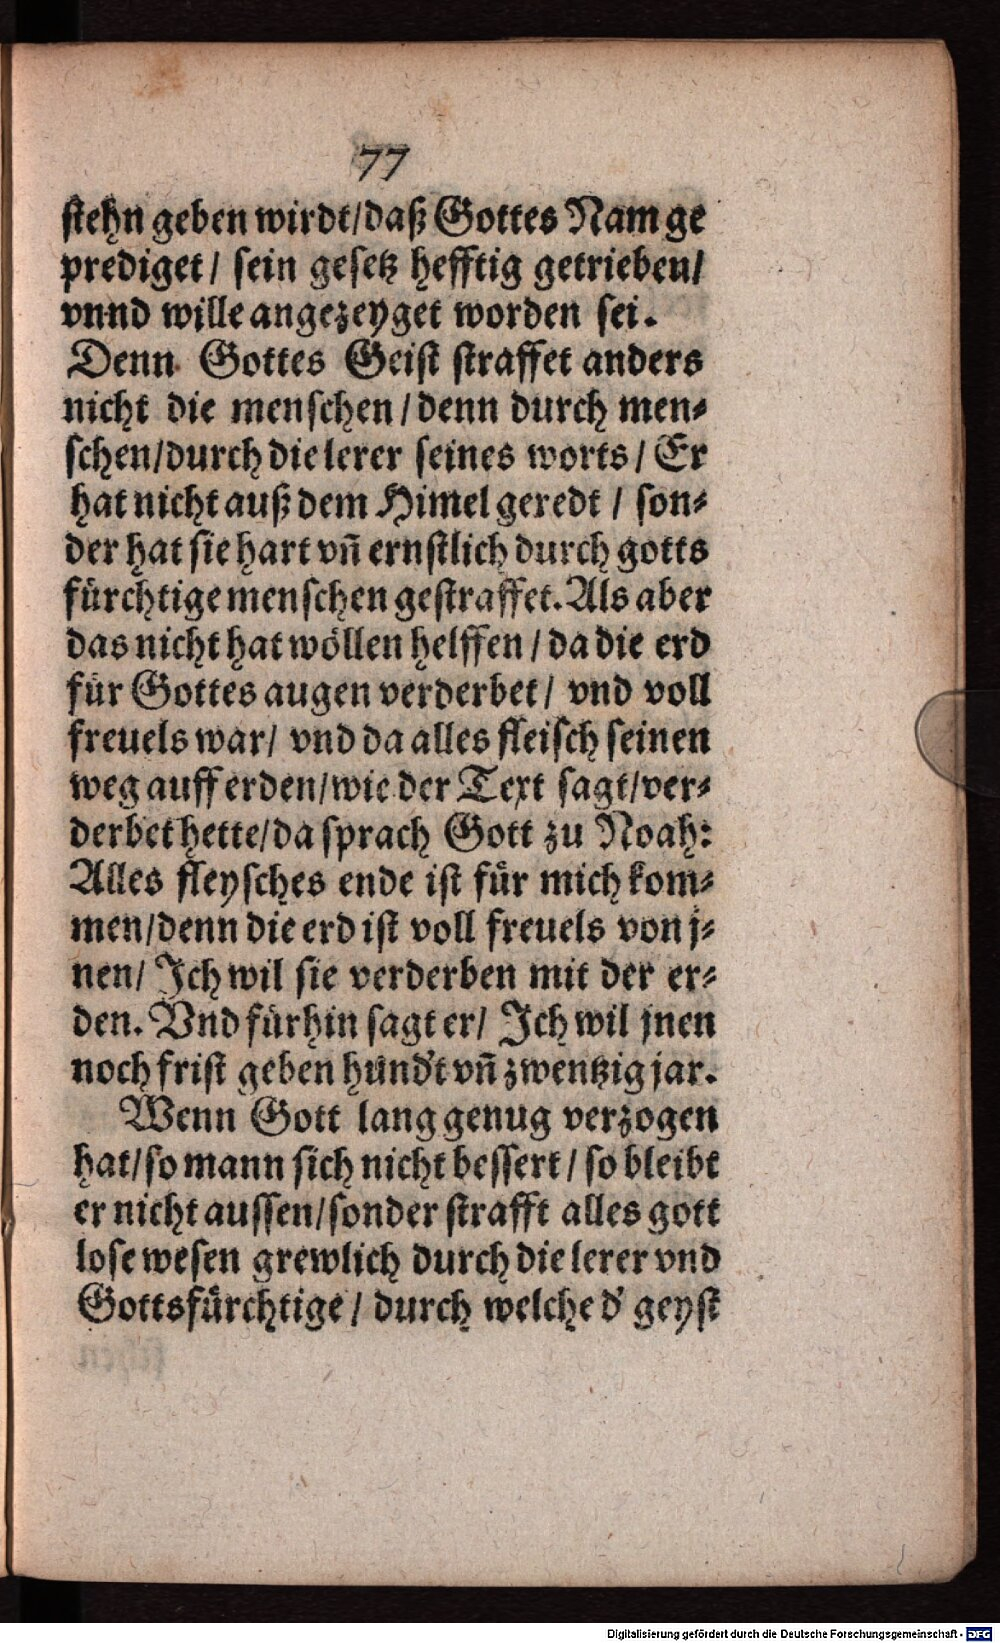 77
stehn geben wirdt/daß Gottes Nam ge
prediget/ sein gesetz hefftig getrieben/
vnnd wille angezeyget worden sei.
Denn Gottes Geist straffet anders
nicht die menschen/denn durch men⸗
schen/durch die lerer seines worts/ Er
hat nicht auß dem Himel geredt / son⸗
der hat sie hart vñ ernstlich durch gotts
fürchtige menschen gestraffet. Als aber
das nicht hat wöllen helffen / da die erd
für Gottes augen verderbet/ vnd voll
freuels war/ vnd da alles fleisch seinen
weg auff erden/wie der Text sagt/ver⸗
derbet hette/da sprach Gott zu Noah:
Alles fleysches ende ist für mich kom⸗
men/denn die erd ist voll freuels von j⸗
nen/ Jch wil sie verderben mit der er⸗
den. Vnd fürhin sagt er/ Jch wil jnen
noch frist geben hund't vñ zwentzig jar.
Wenn Gott lang genug verzogen
hat/so mann sich nicht bessert/ so bleibt
er nicht aussen/sonder strafft alles gott
lose wesen grewlich durch die lerer vnd
Gottsfürchtige/ durch welche d' geyst
Digitalisierung gefördert durch die Deutsche Forschungsgemeinschaft - DFG